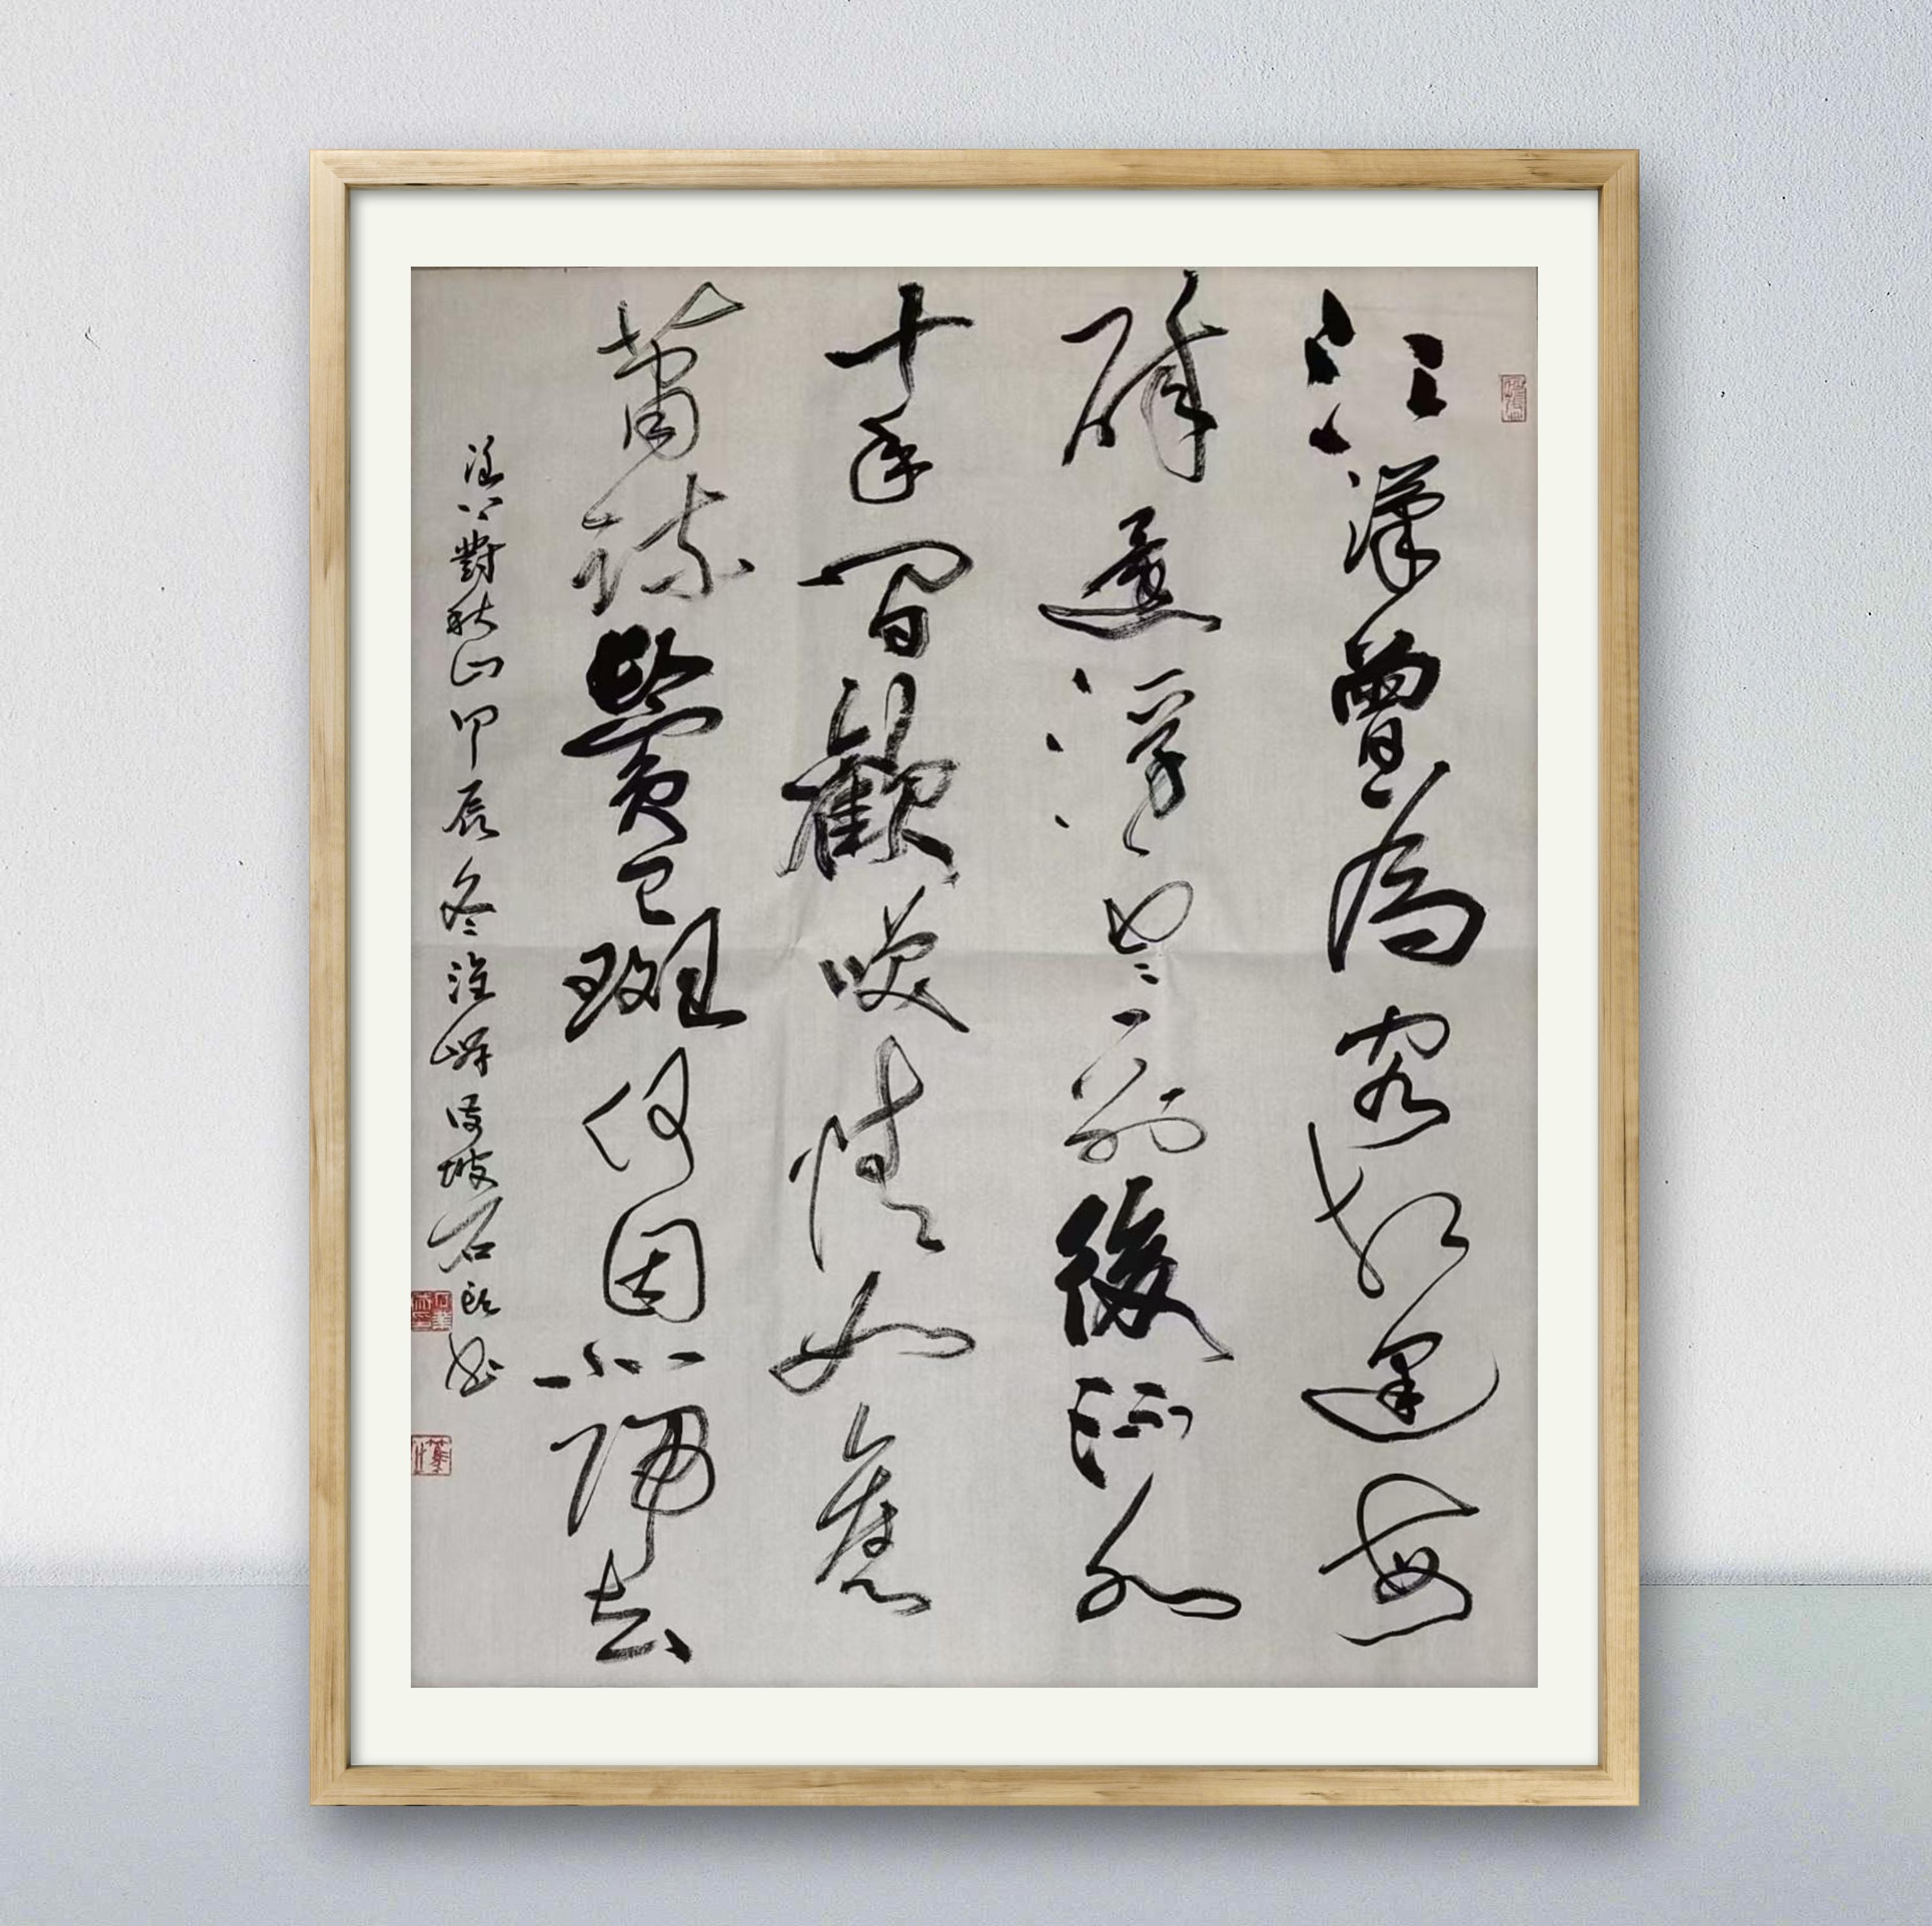 江漢曾為客相逢每
醉還浮雲一別後流水
十年間歡笑情如舊
蕭疏鬢已斑何因不歸去
淮上對秋山甲辰冬坡石書